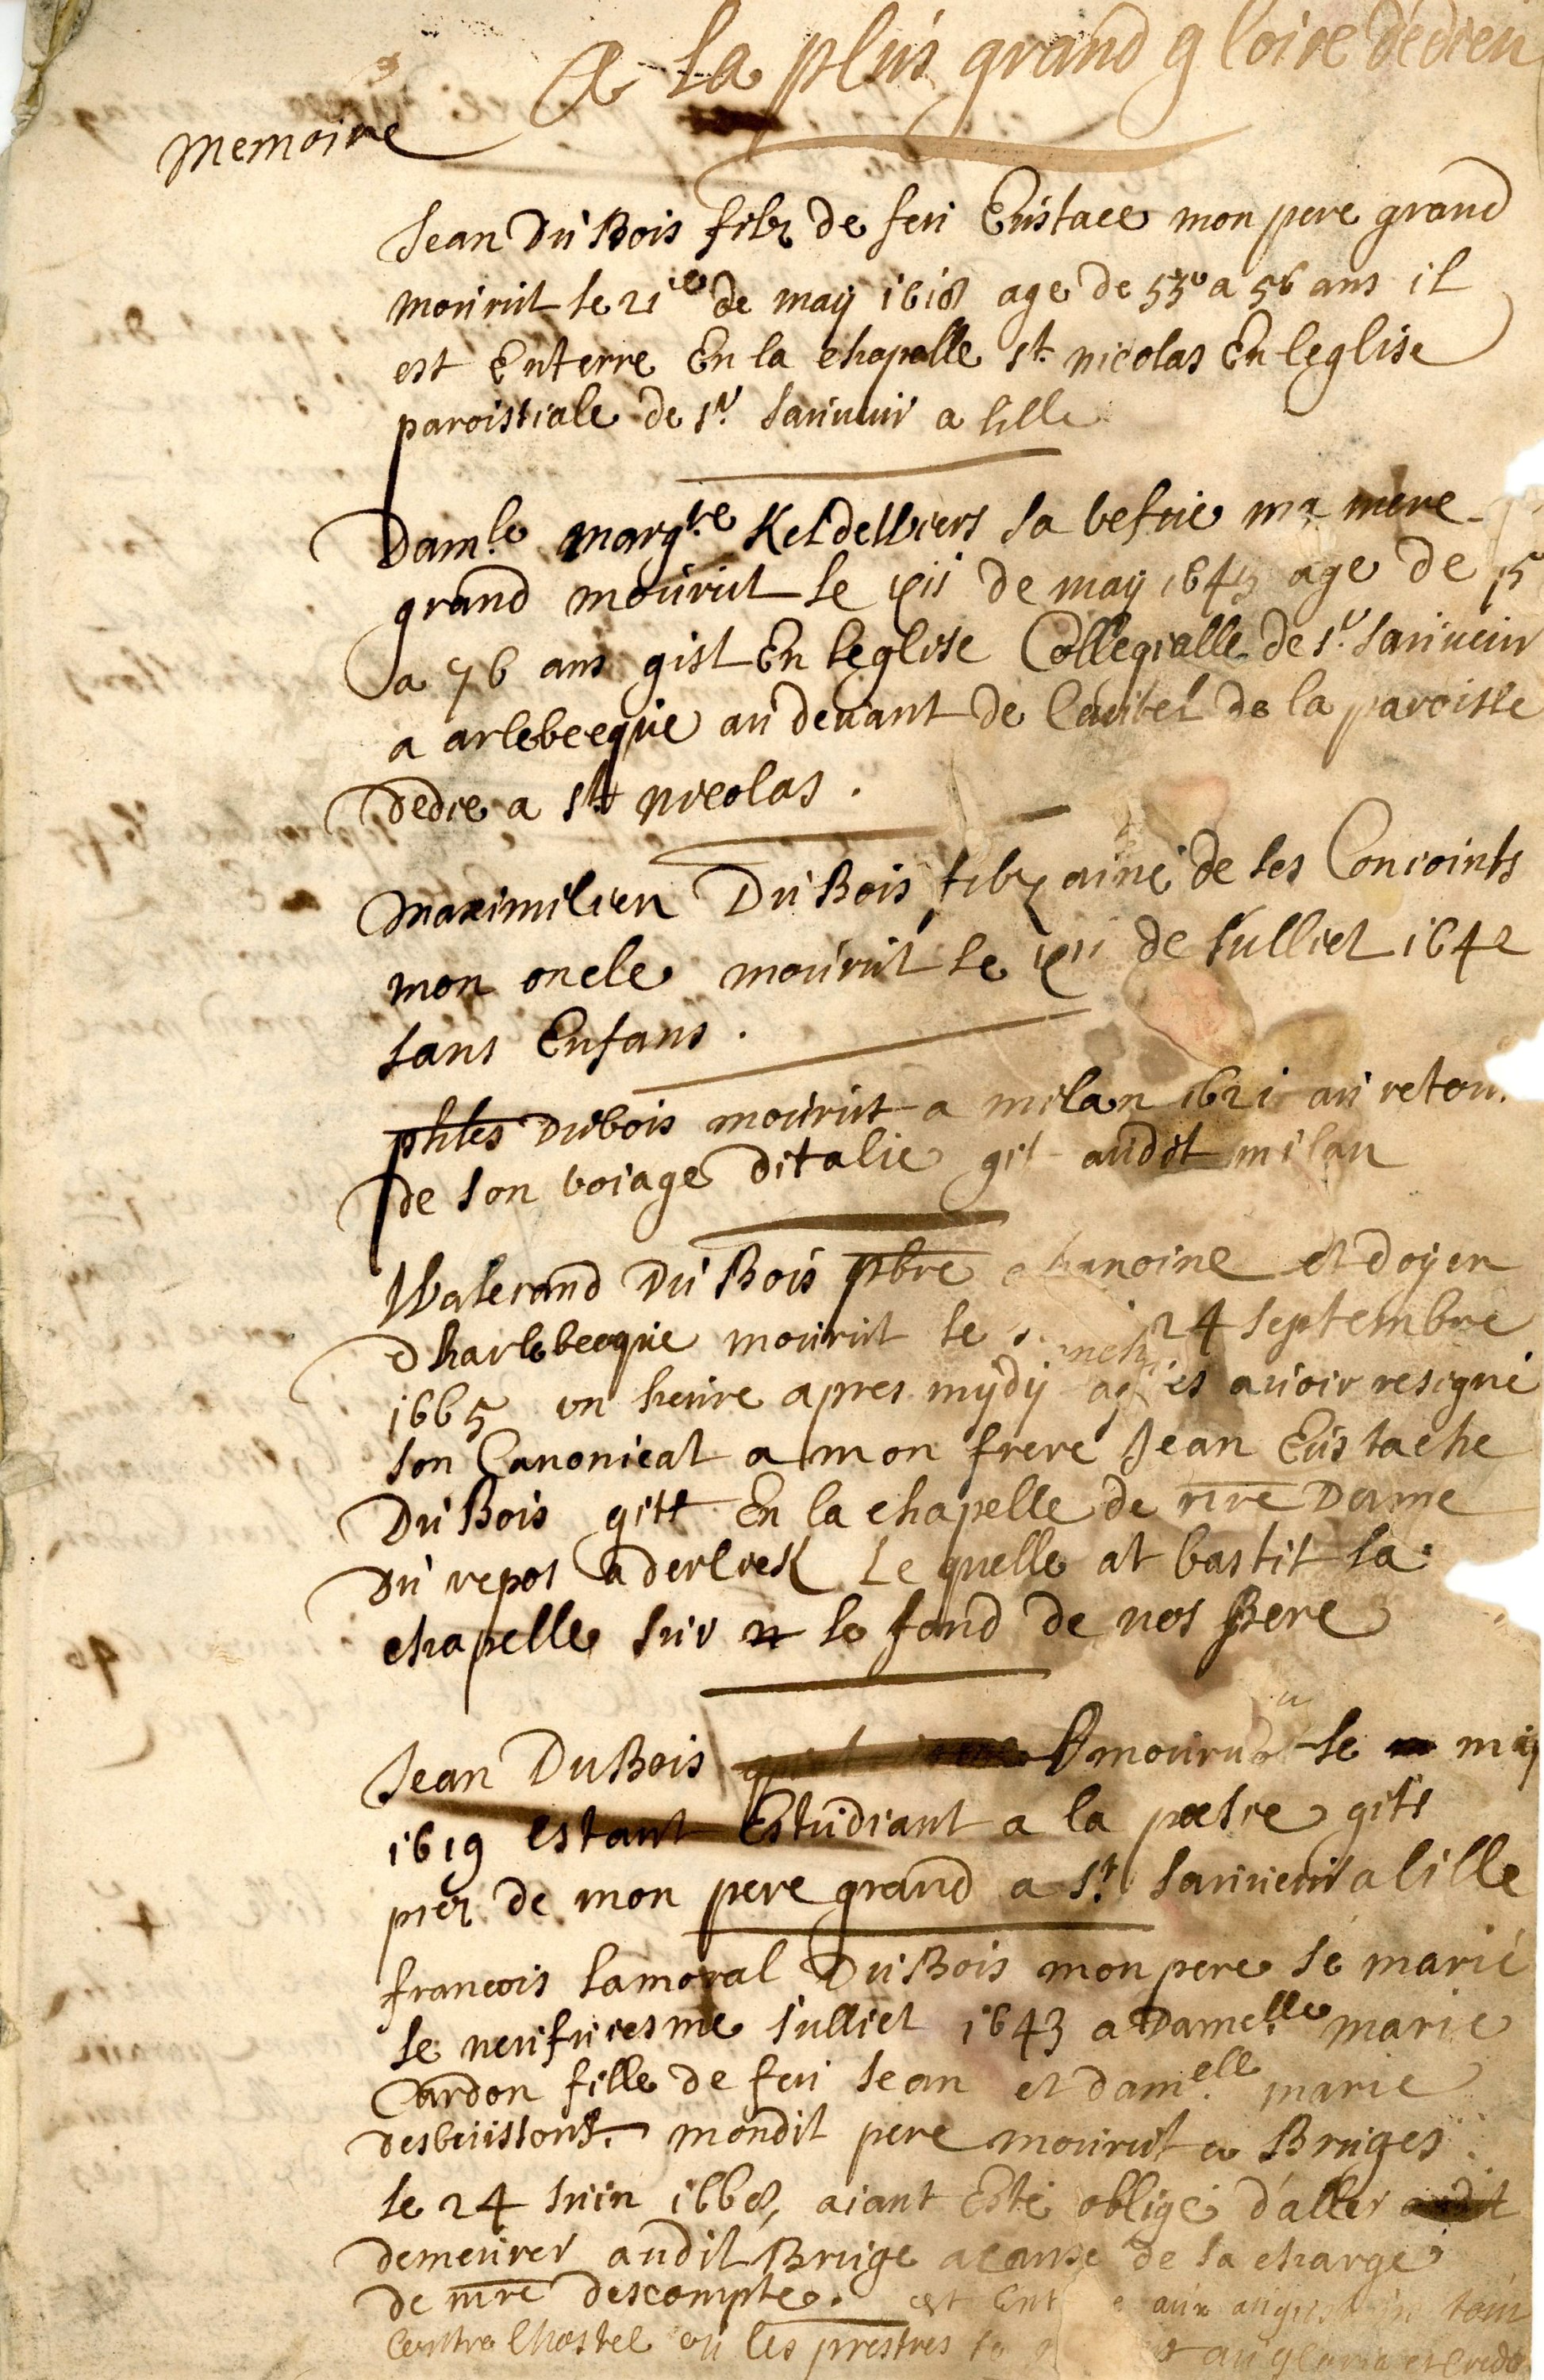 A la plus grand gloire dedieu
Memoire
Jean Du Bois filz de feu Eustace mon pere grand
mourut le 21e de maÿ 1618 age de 55 a 56 ans il
est Enterre En la chapelle st. nicolas En leglise
paroissiale de sr. sauveur a lille
Damle. margte Keldelbiers sa vefve ma mere
grand mourut le xii de maÿ 1643 age de 75
a 76 ans gist En leglise Collegialle de sr. sauveur
a arlebecque au devant de lautel de la paroisse
dedie a st nicolas .
maximilien Du Bois filz ainé de ses Conioints
mon oncle mourut le xii de Julliet 1642
sans Enfans .
phles Dubois mourut a milan 1621 au retou
de son voiage ditalie git audit milan
Walerand Du Bois pbre chanoine et doÿen
dharlebecque mourut le 24 septembre
1665 un heure apres mÿdÿ apres avoir resigné
son Canonicat a mon frere Jean Eustache
Du Bois gitt En la chapelle de nre Dame
du repos a derliek Le quelle at bastit la
chapelle sur le fond de nos Pere
Jean Du Bois mourut le maÿ
1619 estant Estudiant a la poesie gitt
prez de mon pere grand a St. sauveur a lille
francois Lamoral Du Bois mon pere se marié
le neufviesme Julliet 1643 a Damelle. marie
Cardon fille de feu Jean et damelle. marie
desbuissons. mondit pere mourut a Bruges
le 24 Juin 1668, aiant Esté obligé d'aller audit
demeurer audit Bruge acause de sa charge
de mre descompte. est Ent aux augustin tout
Contre lhostel ou les prestres au gloria et Credo